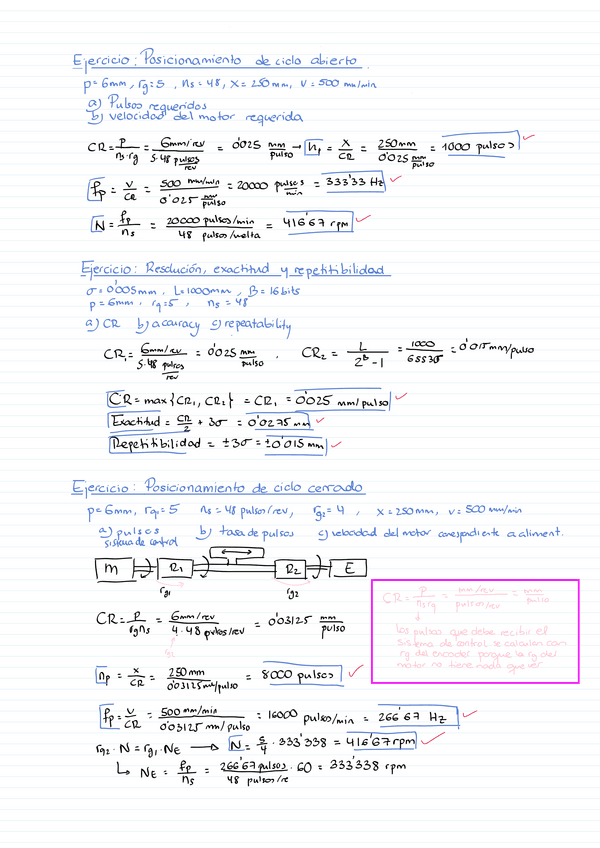 Ejercicio: Posicionamiento de ciclo abierto.
p=6mm, rg=5, ns=48, x=250mm, v=500 mm/min
a) Pulsos requeridos
b) velocidad del motor requerida
CR = p/(ns·rg) = 6mm/rev / 5·48 pulsos/rev = 0'025 mm/pulso → np = x/CR = 250mm / 0'025 mm/pulso = 1000 pulsos
fp = v/CR = 500 mm/min / 0'025 mm/pulso = 20000 pulsos/min = 333'33 Hz
N = fp/ns = 20000 pulsos/min / 48 pulsos/vuelta = 416'67 rpm
Ejercicio: Resolución, exactitud y repetitibilidad
σ=0'005mm, L=1000mm, B=16bits
p=6mm, rg=5, ns=48
a) CR b) accuracy c) repeatability
CR1 = 6mm/rev / 5·48 pulsos/rev = 0'025 mm/pulso, CR2 = L/(2^B-1) = 1000/65535 = 0'015mm/pulso
CR = max{CR1, CR2} = CR1 = 0'025 mm/pulso
Exactitud = CR/2 + 3σ = 0'0275 mm
Repetitibilidad = ±3σ = ±0'015 mm
Ejercicio: Posicionamiento de ciclo cerrado
p=6mm, rg1=5 ns=48 pulsos/rev, rg2=4, x=250mm, v=500 mm/min
a) pulses sistema de control b) tasa de pulsos c) velocidad del motor correspondiente a aliment.
M R1 R2 E
rg1 rg2
CR = p/(ns rg) = mm/rev / pulsos/rev = mm/pulso
rg2
Los pulsos que debe recibir el
sistema de control se calculan con
rg del encoder porque la rg del
motor no tiene nada que ver
CR = p/(rg ns) = 6mm/rev / 4·48 pulsos/rev = 0'03125 mm/pulso
rg2
np = x/CR = 250mm / 0'03125 mm/pulso = 8000 pulsos
fp = v/CR = 500 mm/min / 0'03125 mm/pulso = 16000 pulsos/min = 266'67 Hz
rg2·N = rg1·NE → N = 5/4 · 333'338 = 416'67rpm
↳ NE = fp/ns = 266'67 pulsos / 48 pulsos/re · 60 = 333'338 rpm